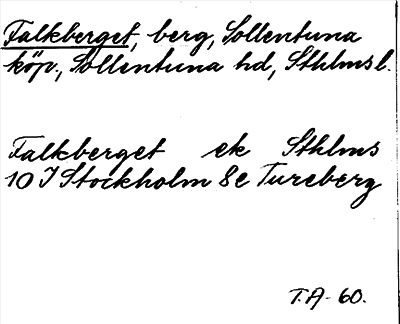 Falkberget, berg, Sollentuna
köp., Sollentuna hd, Sthlms l.
Falkberget ek Sthlms
10 I Stockholm 8e Tureberg
T.A. 60.